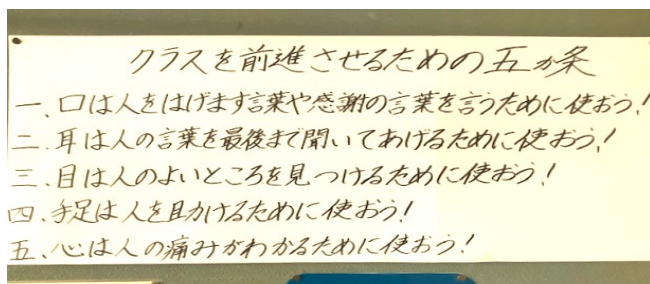 クラスを前進させるための五か条
一、口は人をはげます言葉や感謝の言葉を言うために使おう!
二、耳は人の言葉を最後まで聞いてあげるために使おう!
三、目は人のよいところを見つけるために使おう!
四、手足は人を助けるために使おう!
五、心は人の痛みがわかるために使おう!